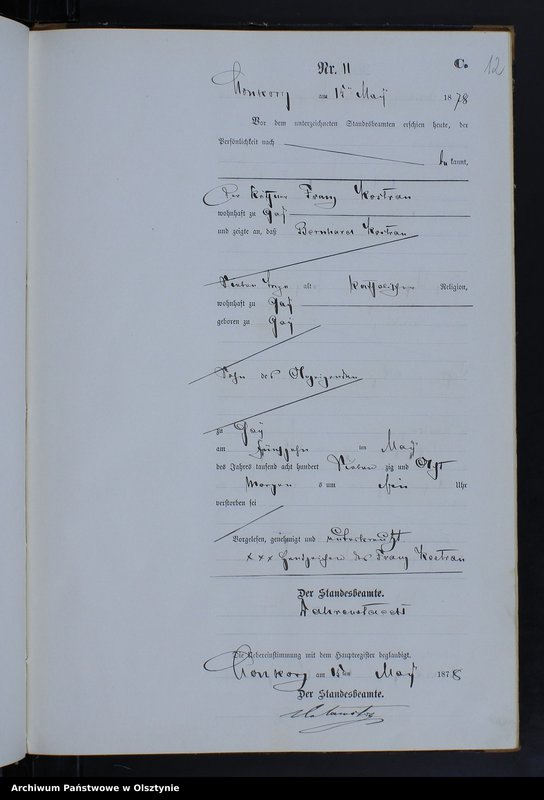 Nr. 11
C.
12
am 15ten May 1878
Vor dem unterzeichneten Standesbeamten erschien heute, der
Persönlichkeit nach
bekannt,
der Franz Kostran
wohnhaft zu Gay
und zeigte an, daß Bernhard Kostran
Sieben Tage alt katholischer Religion,
wohnhaft zu Gay
geboren zu Gay
Sohn des Anzeigenden
zu Gay
am fünfzehn im May
des Jahres tausend acht hundert Siebenzig und Acht
Morgens um Uhr
verstorben sei
Vorgelesen, genehmigt und unterkreuzt.
xxx Handzeichen des Franz Kostran
Der Standesbeamte.
Die Uebereinstimmung mit dem Hauptregister beglaubigt.
am 15ten May 1878
Der Standesbeamte.
Archiwum Państwowe w Olsztynie